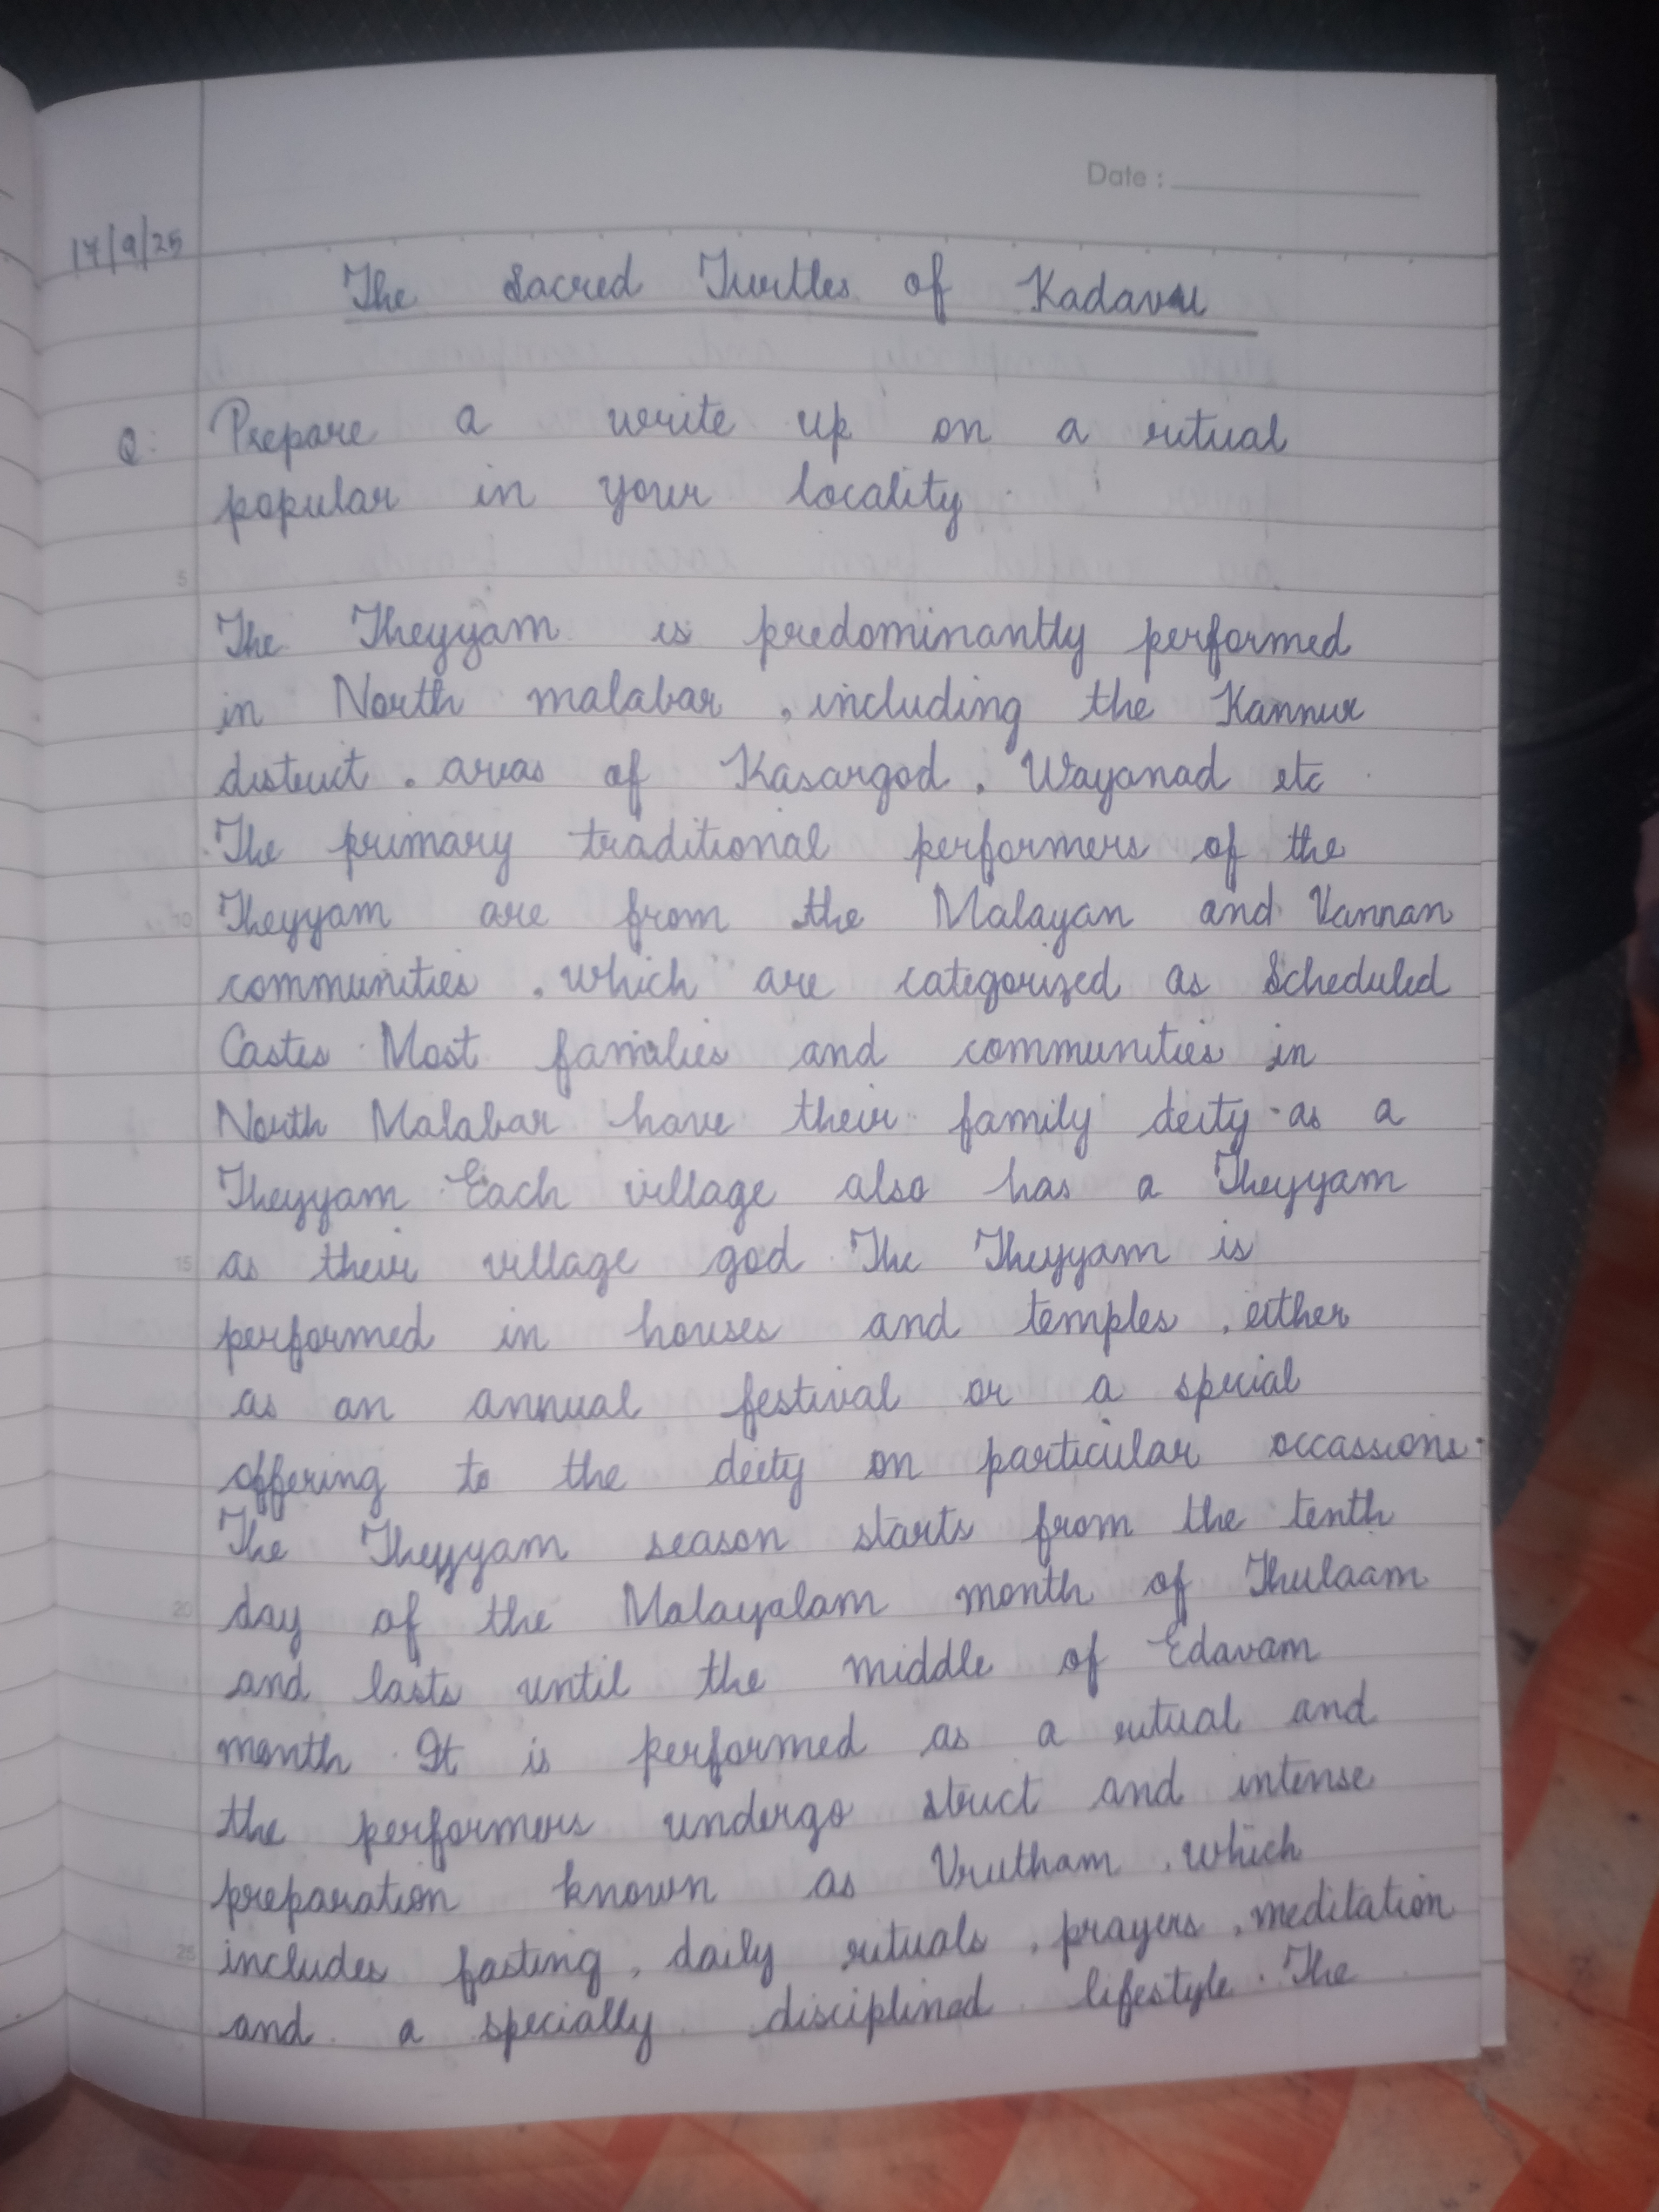 Date :
17/9/25
The Sacred Turtles of Kadavu
Q: Prepare a write up on a ritual
popular in your locality.
5
The Theyyam is predominantly performed
in North malabar , including the Kannur
district , areas of Kasargod , Wayanad etc .
The primary traditional performers of the
10 Theyyam are from the Malayan and Vannan
communities , which are categorized as Scheduled
Castes . Most families and communities in
North Malabar have their family deity as a
Theyyam . Each village also has a Theyyam
15 as their village god . The Theyyam is
performed in houses and temples , either
as an annual festival or a special
offering to the deity on particular occassions .
The Theyyam season starts from the tenth
20 day of the Malayalam month of Thulaam
and lasts until the middle of Edavam
month . It is performed as a ritual and
the performers undergo strict and intense
preparation known as Vrutham , which
25 includes fasting , daily rituals , prayers , meditation
and a specially disciplined lifestyle . The